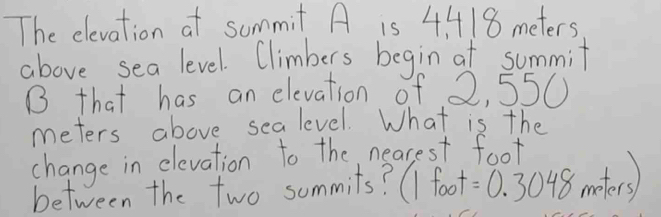 The elevation at summit A is 4,418 meters
above sea level. Climbers begin at summit
B that has an elevation of 2,550
meters above sea level. What is the
change in elevation to the nearest foot
between the two summits? (1 foot = 0.3048 meters)